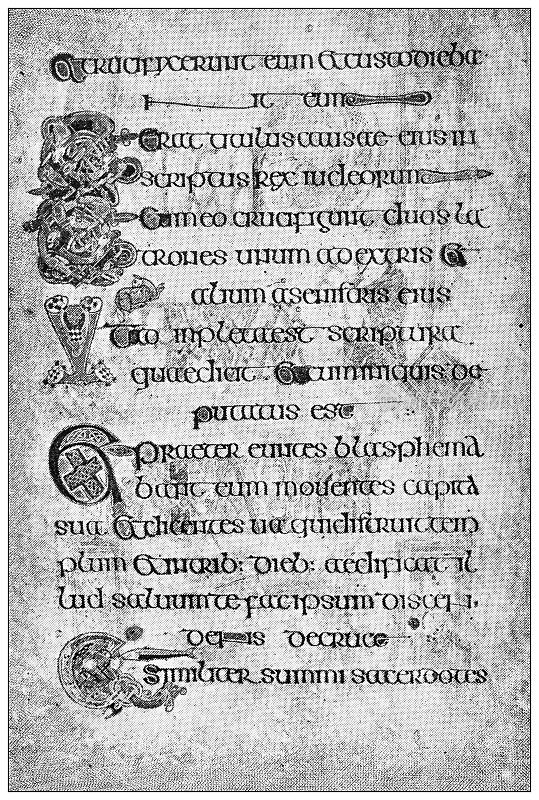 & crucifixerunt eum & custodieba
nt eum
Et erat titulus causae eius in
scriptus rex iudeorum
Et cum eo crucifigunt duos la
trones unum ad extris &
alium asenistris eius
inpleta est scriptura
quae dicit & cum iniquis de
putatus est
Et praeter euntes blasphema
bant eum mouentes capita
sua & dicentes ua qui distruit tem
plum & intrib: dieb: aedificat il
lud saluum te fac ipsum discen
dens decruce
Et similiter summi sacerdotes